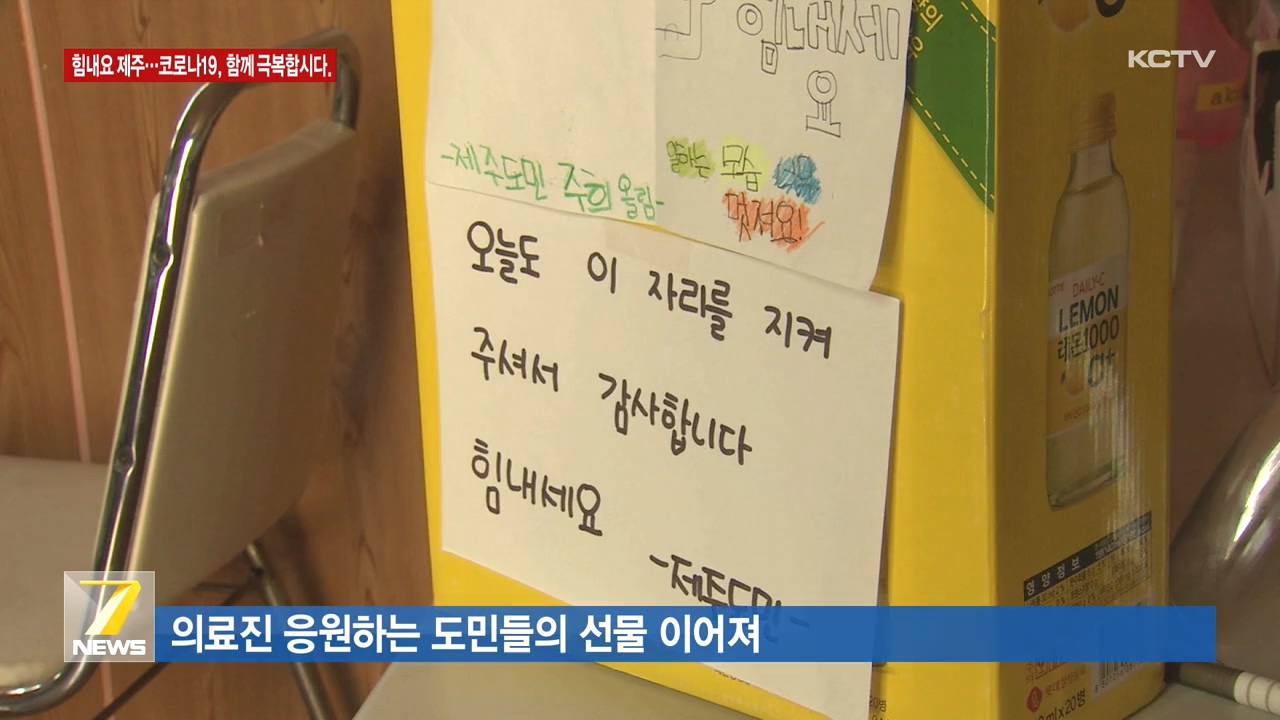 힘내요 제주…코로나19, 함께 극복합시다.
KCTV
힘내세
요
-제주도민 주희 올림-
일하는 모습 너무
멋져요!
오늘도 이 자리를 지켜
주셔서 감사합니다
힘내세요
-제주도민-
DAILY-C
LEMON
레몬1000
영양정보
x20병
7
NEWS
의료진 응원하는 도민들의 선물 이어져